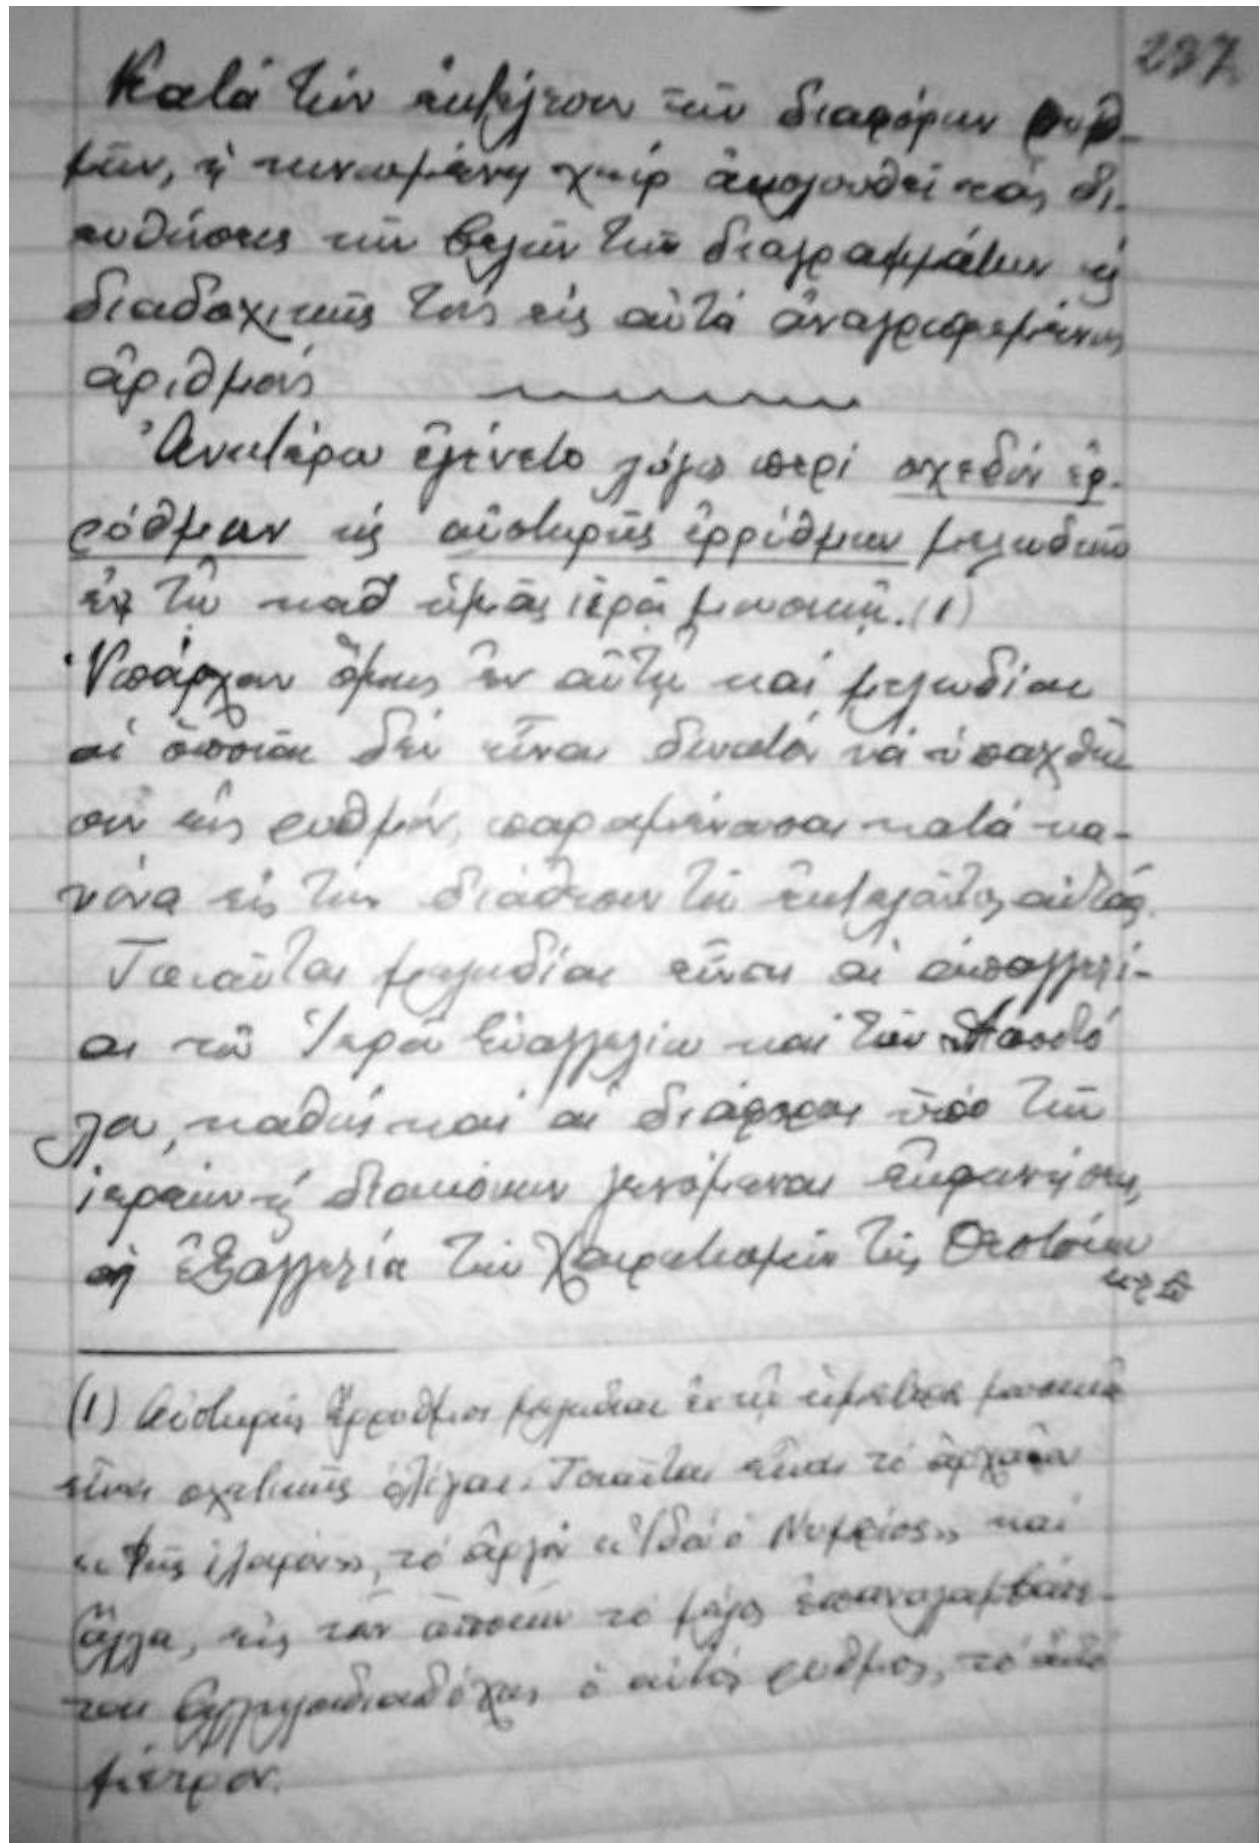 237
Κατά τήν ἐκτέλεσιν τῶν διαφόρων ρυθ-
μῶν, ἡ κινουμένη χείρ ἀκολουθεῖ τάς δι-
ευθύνσεις τῶν βελῶν τῶν διαγραμμάτων ἤ
διαδοχικῶς τούς εἰς αὐτά ἀναγραφομένους
ἀριθμούς
Ἀνωτέρω ἐγένετο λόγος περί σχεδόν ἐρ-
ρύθμων ἤ αὐστηρῶς ἐρρύθμων μελωδιῶν
ἐν τῇ καθ' ἡμᾶς ἱερᾷ μουσικῇ. (1)
Ὑπάρχουν ὅμως ἐν αὐτῇ καί μελωδίαι
αἱ ὁποῖαι δέν εἶναι δυνατόν νά ὑπαχθῶ
σιν εἰς ρυθμόν, παραμένουσαι κατά κα-
νόνα εἰς τήν διάθεσιν τοῦ ἐκτελοῦντος αὐτάς.
Τοιαῦται μελωδίαι εἶναι αἱ ἀπαγγελί-
αι τοῦ Ἱεροῦ Εὐαγγελίου καί τοῦ Ἀποστό
λου, καθώς καί αἱ διάφοροι ὑπό τῶν
ἱερέων ἤ διακόνων γενόμεναι ἐκφωνήσεις,
ἡ ἐξαγγελία τῶν Χαιρετισμῶν τῆς Θεοτόκου
κλπ
(1) Αὐστηρῶς ἔρρυθμοι μελωδίαι ἐν τῇ ἡμετέρᾳ μουσικῇ
εἶναι σχετικῶς ὀλίγαι. Τοιαῦται εἶναι τό ἀρχαῖον
«Φῶς ἱλαρόν», τό ἀργόν «Ἰδού ὁ Νυμφίος» καί
ἄλλα, εἰς τῶν ὁποίων τό μέλος ἐπαναλαμβάνε-
ται ἀλληλοδιαδόχως ὁ αὐτός ρυθμός, τό αὐτό
μέτρον.